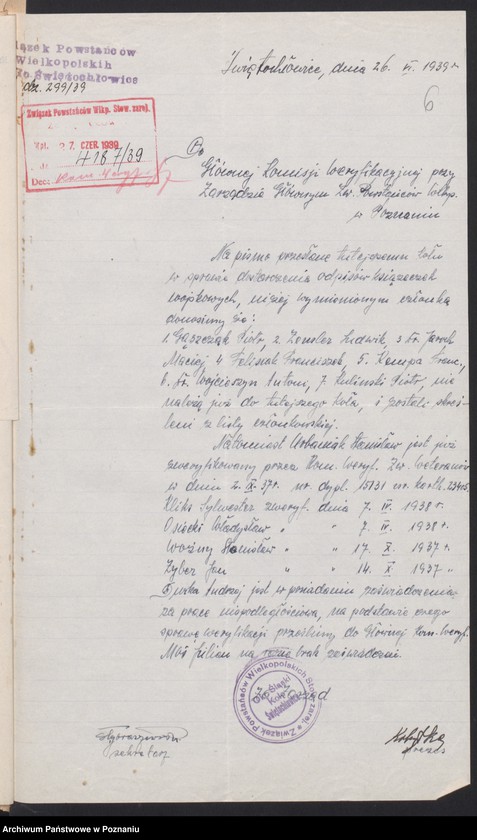 Związek Powstańców
Wielkopolskich
Koło Świętochłowice
dz. 299/39
Świętochłowice, dnia 26. VI. 1939 r.
6
Związek Powstańców Wlkp. Stow. zarej.
27. CZER. 1939
4187/39
Do
Głównej Komisji Weryfikacyjnej przy
Zarządzie Głównym Zw. Powstańców Wlkp.
w Poznaniu
Na pismo przesłane tutejszemu kołu
w sprawie dostarczenia odpisów książeczek
wojskowych, niżej wymienionym członkom
donosimy że:
1. Gąszczak Piotr, 2. Zensler Ludwik, 3. Jacek
Maciej 4 Felisiak Franciszek, 5. Kempa Franc.,
6. Wojcieszyn Antoni, 7. Kuliński Piotr, nie
należą już do tutejszego koła, i zostali skreś-
leni z listy członkowskiej.
Natomiast Urbaniak Stanisław jest już
zweryfikowany przez Kom. Weryf. Zw. Weteranów
w dniu 2. IX. 37 r. nr. dypl. 15131 nr. karth. 23405.
Kliks Sylwester zweryf. dnia 7. IV. 1938 r.
Osiecki Władysław " " 7. IV. 1938 r.
Woźny Stanisław " " 17. X. 1937 r.
Zyber Jan " " 14. X. 1937 "
Andrzej jest w posiadaniu zaświadczenia
za pracę niepodległościową, na podstawie czego
sprawę weryfikacji prześlemy do Głównej Kom. Weryf.
Moś Julian na razie brak zaświadczeń.
Związek Powstańców Wielkopolskich Stow. zarej.
Okr. Śląski
Koło
Świętochłowice
Zarząd
sekretarz
prezes
Archiwum Państwowe w Poznaniu